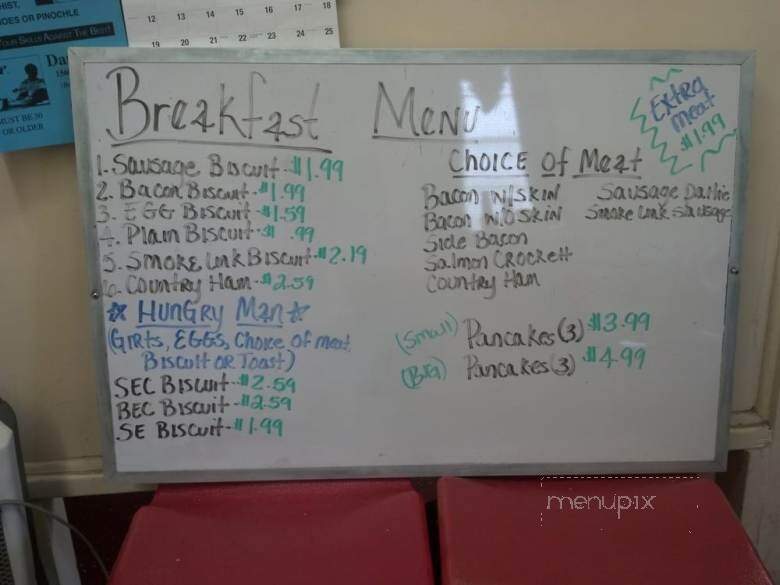 HIST,
OES OR PINOCHLE
YOUR SKILLS AGAINST THE BEST
Da
MUST BE 50
OR OLDER
12 13 14 15 16 17 18
19 20 21 22 23 24 25
Breakfast Menu
1. Sausage Biscuit-$1.99
2. Bacon Biscuit-$1.99
3. EGG Biscuit-$1.59
4. Plain Biscuit-$ .99
5. Smoke Link Biscuit-$2.19
6. Country Ham-$2.59
☆ HUNGRY MAN ☆
(GIRTS, EGGS, Choice of meat
BISCUIT OR TOAST)
SEC BISCUIT-$2.59
BEC BISCUIT-$2.59
SE BISCUIT-$1.99
Extra
meat
$1.99
CHOICE Of Meat
Bacon W/SKIN
Bacon W/O SKIN
Side Bacon
Salmon CROCKett
Country Ham
Sausage
Smoke Link Sausage
(Small) Pancakes (3) $3.99
(BIG) Pancakes (3) $4.99
menupix